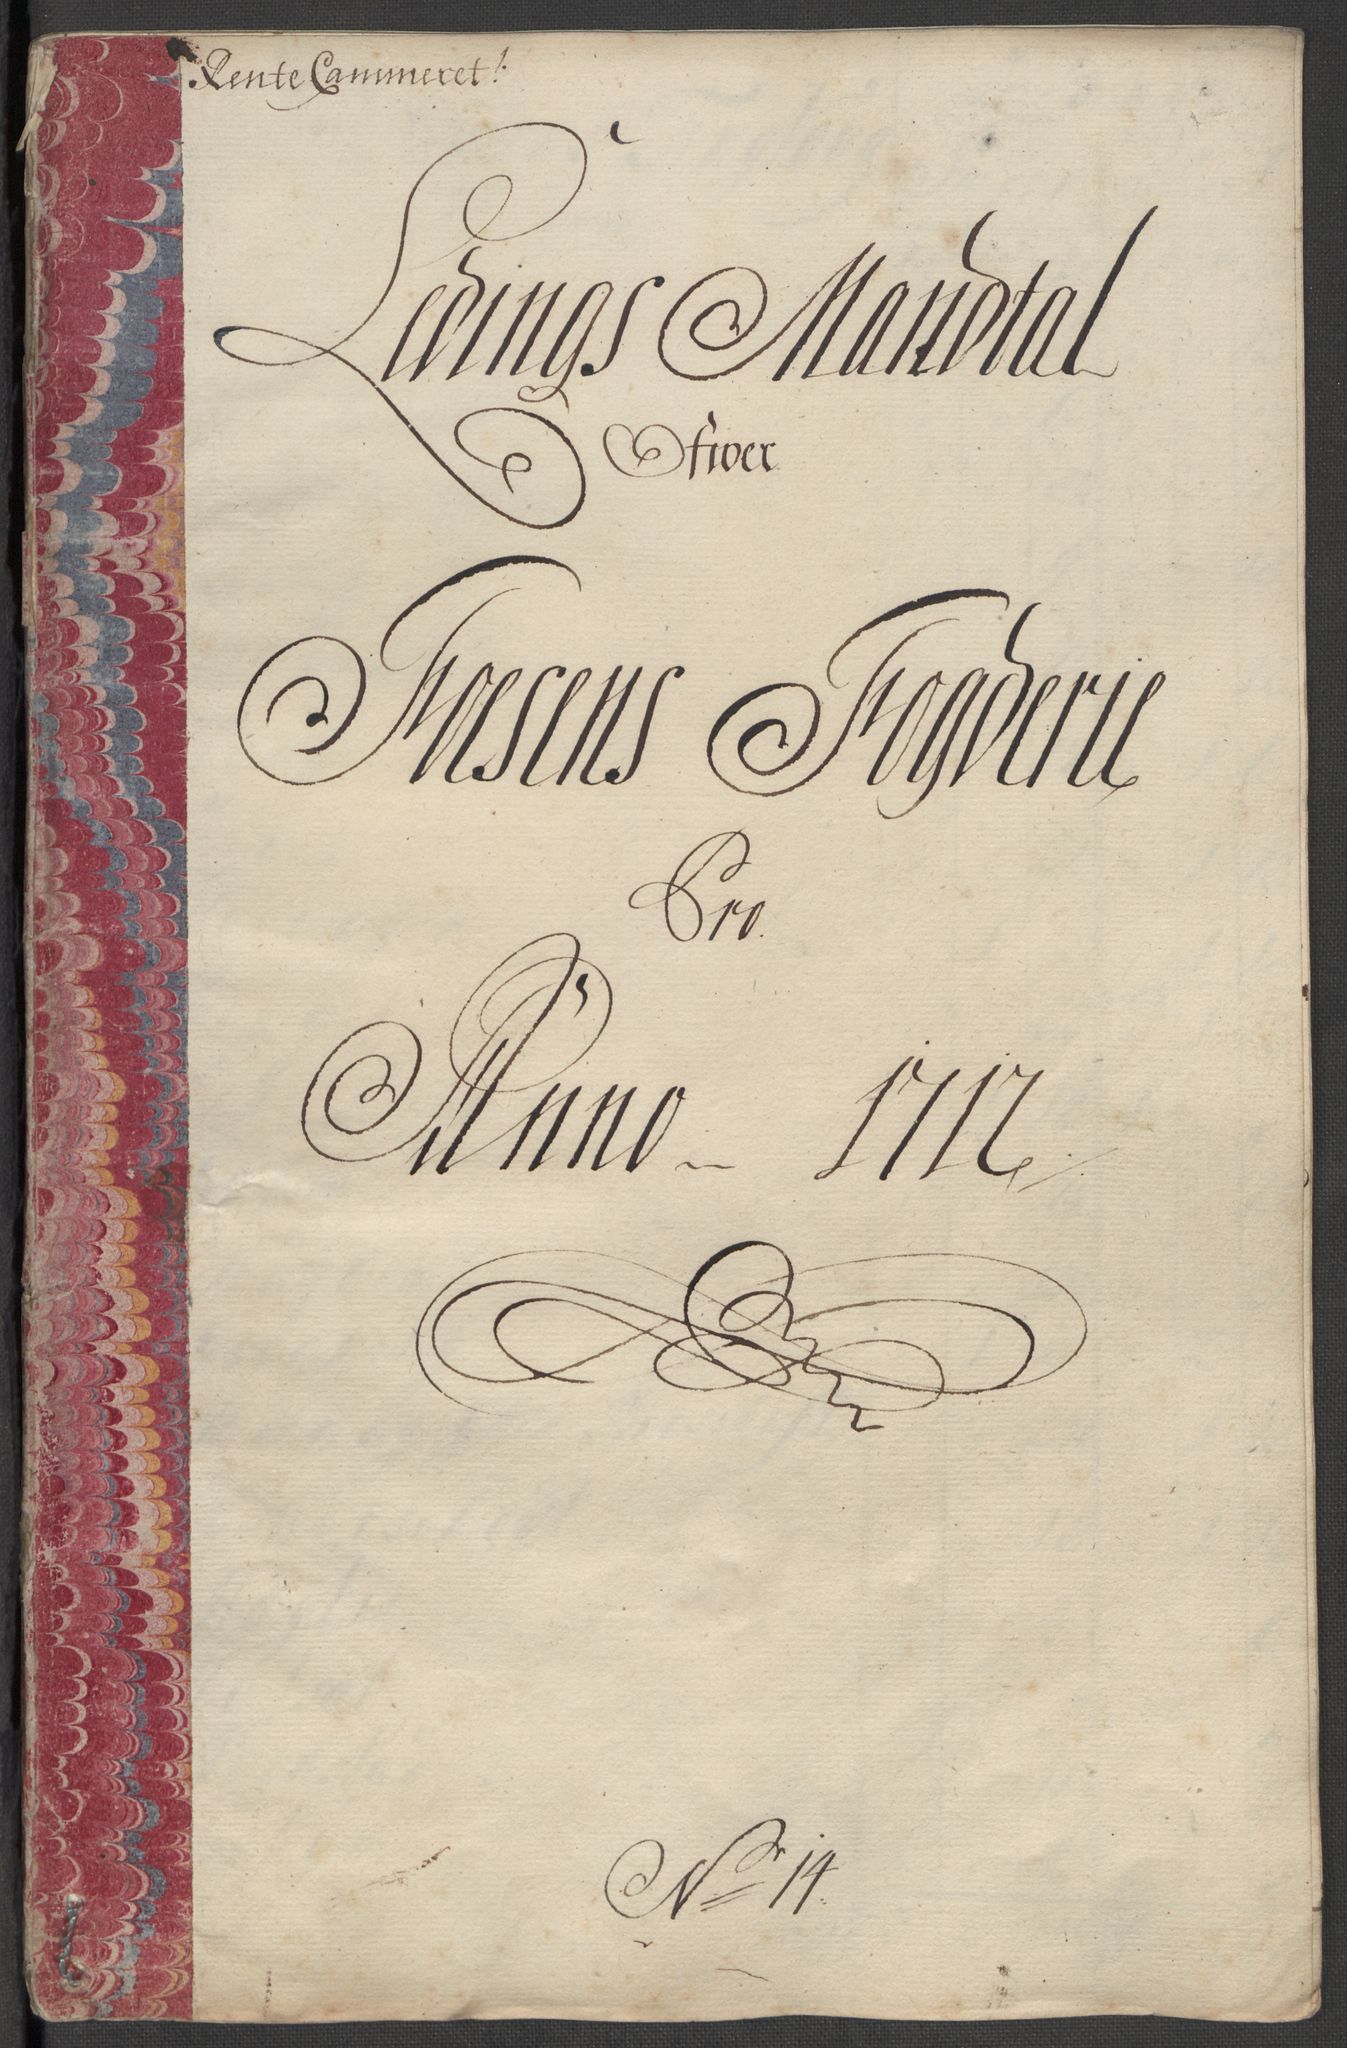 Rente Cammeret!
Ledings Mandtal
Ofwer
Foesens Fogderie
Pro
Anno 1712
No 14.